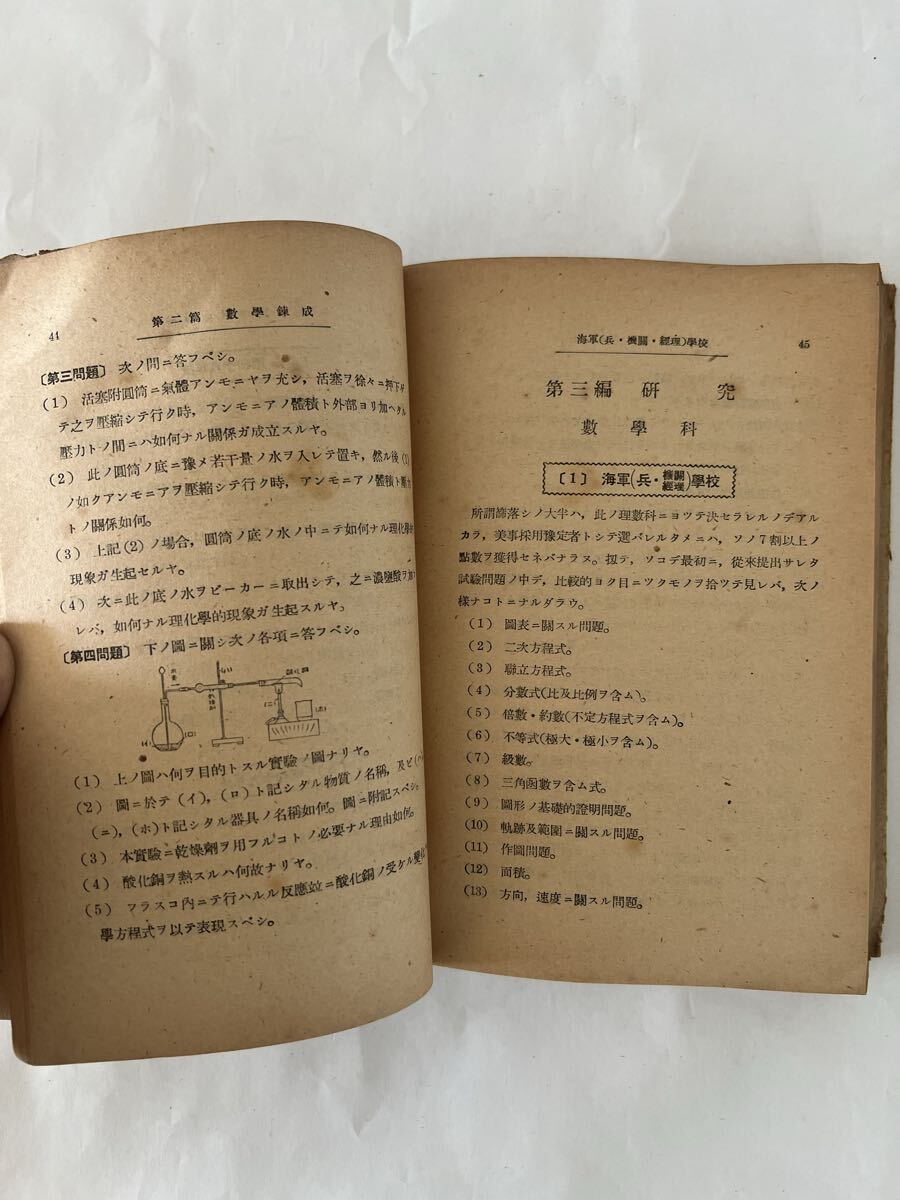 44
第二篇 數學錬成
〔第三問題〕 次ノ問ニ答フベシ。
(1) 活塞附圓筒ニ氣體アンモニヤヲ充シ，活塞ヲ徐々ニ押下ゲ
テ之ヲ壓縮シテ行ク時，アンモニアノ體積ト外部ヨリ加ヘタル
壓力トノ間ニハ如何ナル關係ガ成立スルヤ。
(2) 此ノ圓筒ノ底ニ豫メ若干量ノ水ヲ入レテ置キ，然ル後(1)
ノ如クアンモニアヲ壓縮シテ行ク時，アンモニアノ體積ト壓力
トノ關係如何。
(3) 上記(2)ノ場合，圓筒ノ底ノ水ノ中ニテ如何ナル理化學的
現象ガ生起セルヤ。
(4) 次ニ此ノ底ノ水ヲビーカーニ取出シテ，之ニ濃鹽酸ヲ加フ
レバ，如何ナル理化學的現象ガ生起スルヤ。
〔第四問題〕 下ノ圖ニ關シ次ノ各項ニ答フベシ。
(イ)
(ロ)
(ハ)
(ニ)
(ホ)
(1) 上ノ圖ハ何ヲ目的トスル實驗ノ圖ナリヤ。
(2) 圖ニ於テ(イ)，(ロ)ト記シタル物質ノ名稱，及ビ(ハ)
(ニ)，(ホ)ト記シタル器具ノ名稱如何。圖ニ附記スベシ。
(3) 本實驗ニ乾燥劑ヲ用フルコトノ必要ナル理由如何。
(4) 酸化銅ヲ熱スルハ何故ナリヤ。
(5) フラスコ內ニテ行ハルル反應竝ニ酸化銅ノ受ケル變化
學方程式ヲ以テ表現スベシ。
海軍(兵・機關・經理)學校
45
第三編 硏究
數學科
〔1〕 海軍(兵・機關經理)學校
所謂諦落シノ大半ハ，此ノ理數科ニヨツテ決セラレルノデアル
カラ，美事採用豫定者トシテ選バレルタメニハ，ソノ7割以上ノ
點數ヲ獲得セネバナラヌ。扨テ，ソコデ最初ニ，從來提出サレタ
試驗問題ノ中デ，比較的ヨク目ニツクモノヲ拾ツテ見レバ，次ノ
樣ナコトニナルダラウ。
(1) 圖表ニ關スル問題。
(2) 二次方程式。
(3) 聯立方程式。
(4) 分數式(比及比例ヲ含ム)。
(5) 倍數・約數(不定方程式ヲ含ム)。
(6) 不等式(極大・極小ヲ含ム)。
(7) 級數。
(8) 三角函數ヲ含ム式。
(9) 圖形ノ基礎的證明問題。
(10) 軌跡及範圍ニ關スル問題。
(11) 作圖問題。
(12) 面積。
(13) 方向，速度ニ關スル問題。